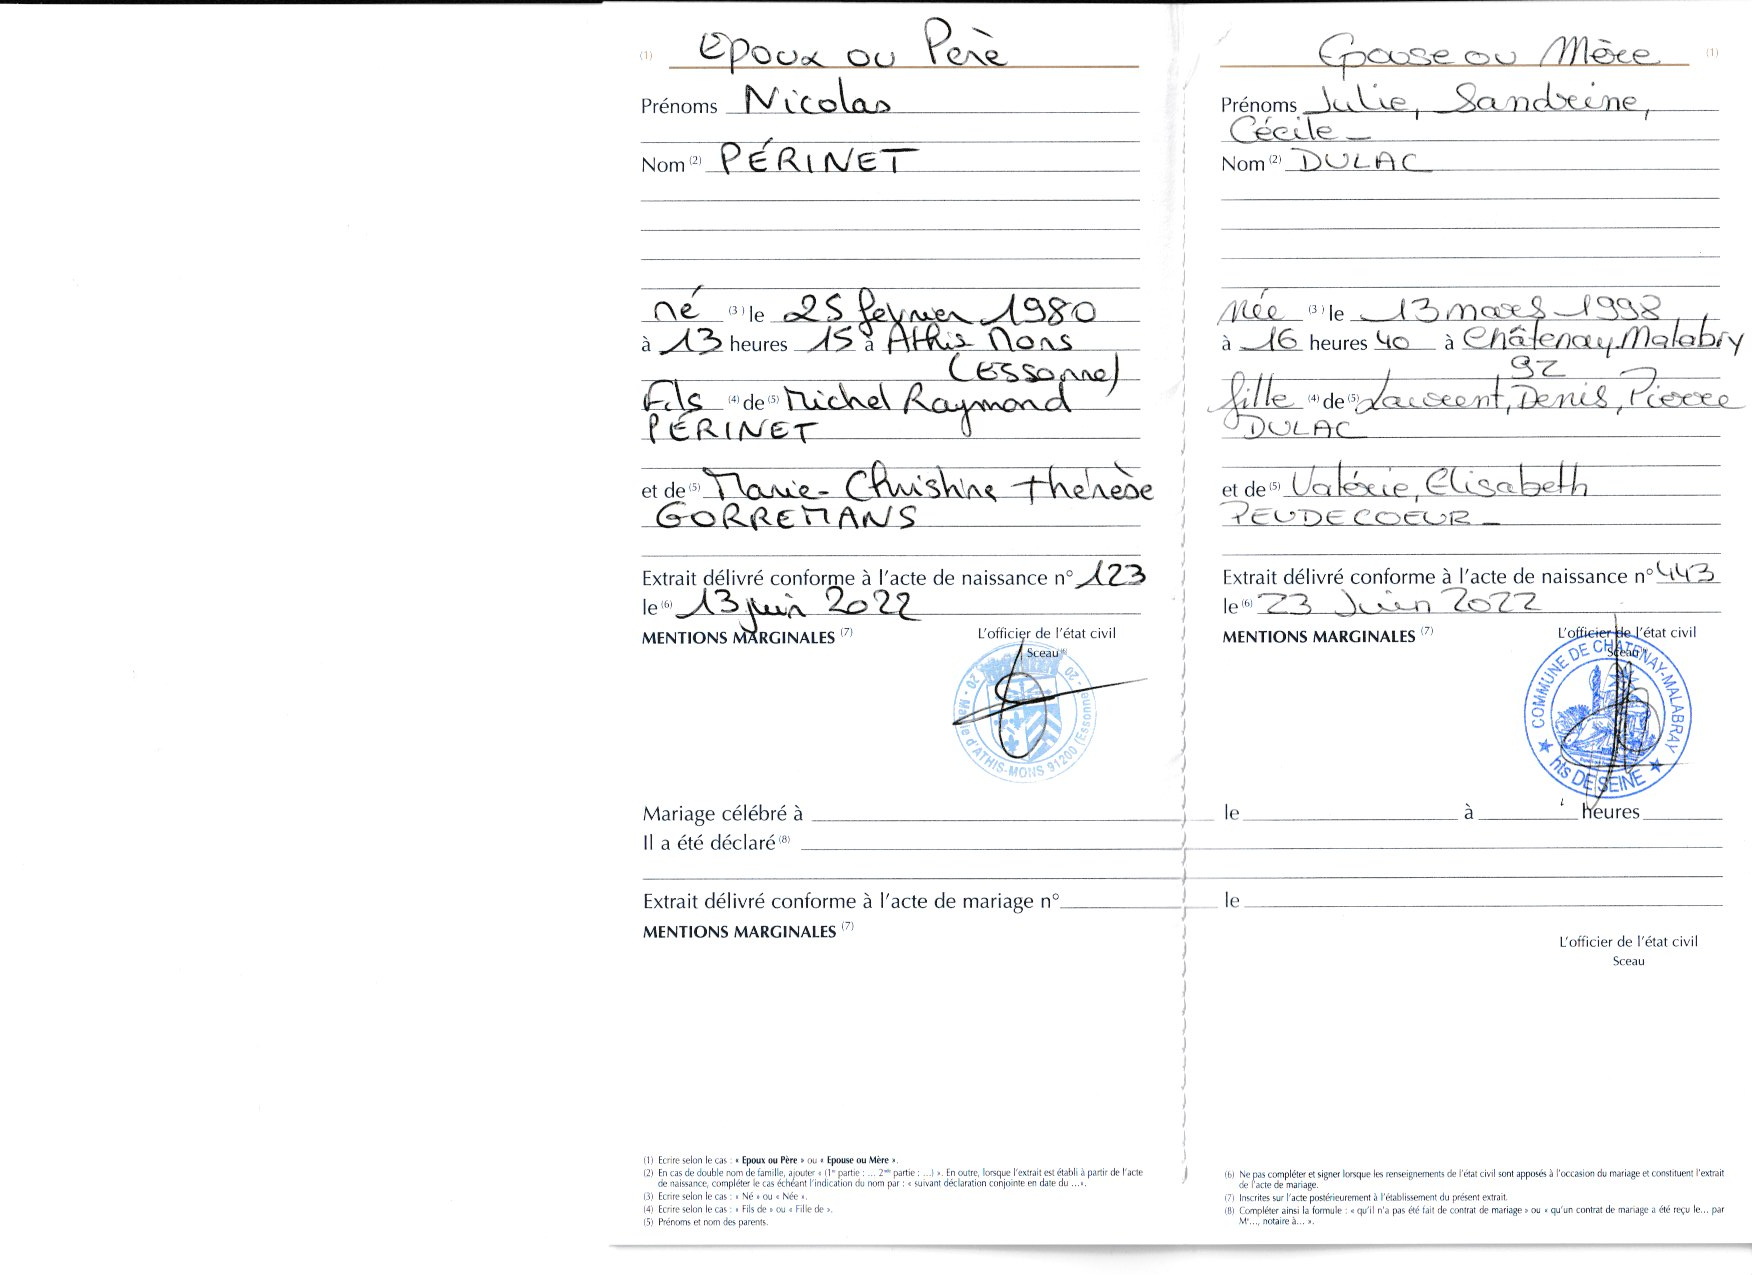 (1) Epoux ou Père
Prénoms Nicolas
Nom (2) PÉRINET
né (3) le 25 février 1980
à 13 heures 15 à Athis Mons
(Essonne)
Fils (4) de (5) Michel Raymond
PÉRINET
et de (5) Marie-Christine Thérèse
GORREMANS
Extrait délivré conforme à l'acte de naissance n° 123
le (6) 13 juin 2022
MENTIONS MARGINALES (7)
L'officier de l'état civil
Sceau
Mairie d'ATHIS-MONS 91200 (Essonne)
Epouse ou Mère (1)
Prénoms Julie, Sandrine,
Cécile_
Nom (2) DULAC
Née (3) le 13 mars 1998
à 16 heures 40 à Châtenay-Malabry
92
fille (4) de (5) Laurent, Denis, Pierre
DULAC
et de (5) Valérie, Elisabeth
PEUDECOEUR_
Extrait délivré conforme à l'acte de naissance n° 443
le (6) 23 Juin 2022
MENTIONS MARGINALES (7)
L'officier de l'état civil
Sceau
COMMUNE DE CHATENAY-MALABRAY
hts DE SEINE
Mariage célébré à le à heures
Il a été déclaré (8)
Extrait délivré conforme à l'acte de mariage n° le
MENTIONS MARGINALES (7)
L'officier de l'état civil
Sceau
(1) Ecrire selon le cas : « Epoux ou Père » ou « Epouse ou Mère ».
(2) En cas de double nom de famille, ajouter « (1re partie : ... 2me partie : ...) ». En outre, lorsque l'extrait est établi à partir de l'acte
de naissance, compléter le cas échéant l'indication du nom par : « suivant déclaration conjointe en date du ...».
(3) Ecrire selon le cas : « Né » ou « Née ».
(4) Ecrire selon le cas : « Fils de » ou « Fille de ».
(5) Prénoms et nom des parents.
(6) Ne pas compléter et signer lorsque les renseignements de l'état civil sont apposés à l'occasion du mariage et constituent l'extrait
de l'acte de mariage.
(7) Inscrites sur l'acte postérieurement à l'établissement du présent extrait.
(8) Compléter ainsi la formule : « qu'il n'a pas été fait de contrat de mariage » ou « qu'un contrat de mariage a été reçu le... par
Me..., notaire à... ».